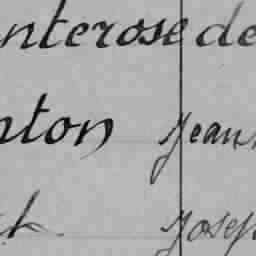 nterose de
nton Jean
ch Joseph